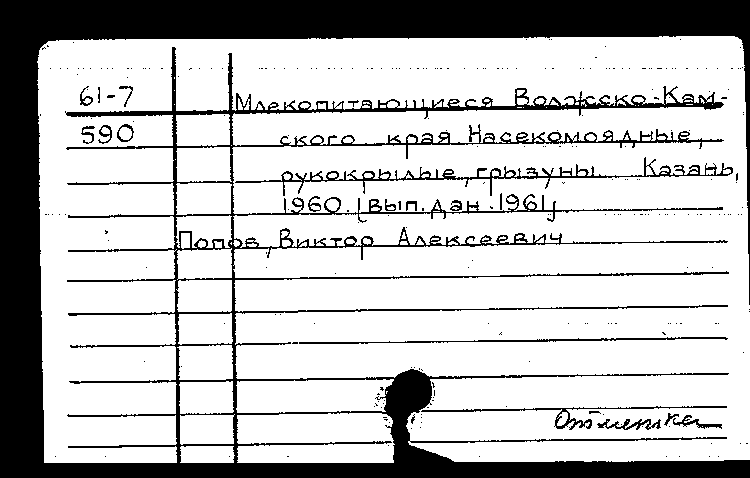 61-7 Млекопитающиеся Волжско-Кам-
590 ского края Насекомоядные,
рукокрылые, грызуны. Казань,
1960. [вып. дан. 1961]
Попов, Виктор Алексеевич
Отметка